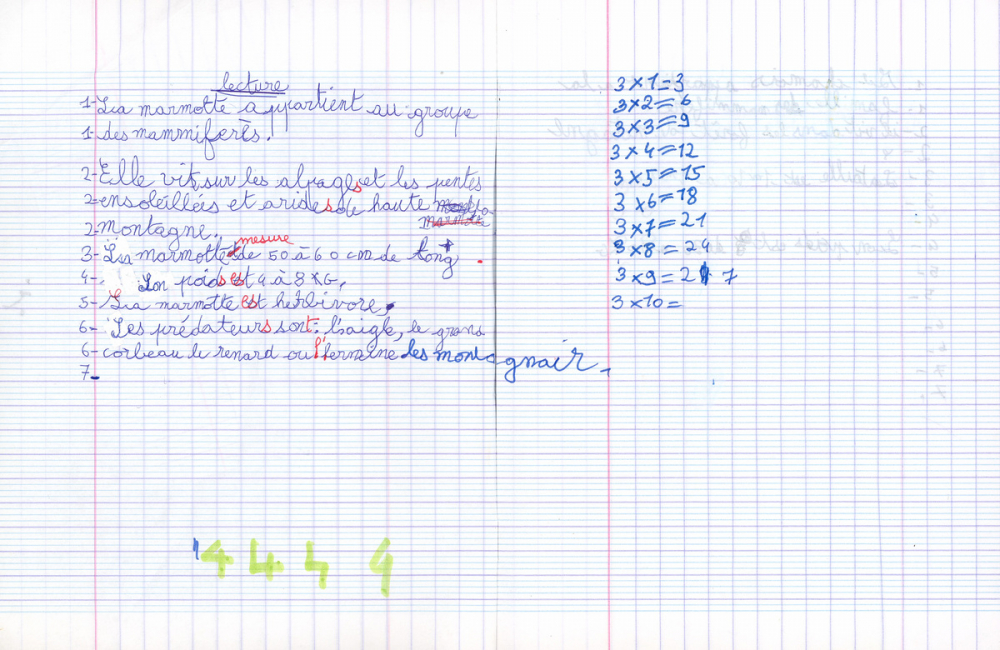 lecture
1-La marmotte appartient au groupe
1-des mammiferès.
2-Elle vit sur les alpages et les pentes
2-ensoleillées et arides de haute
marmotte
2-montagne.
mesure
3-La marmotte de 50 à 60 cm de long.
4- Son poids est 4 à 8 KG.
5-La marmotte est herbivore.
6-Les prédateurs sont: l'aigle, le grans
6-corbeau le renard ou l'hermine les montagnair.
7-
3×1=3
3×2=6
3×3=9
3×4=12
3×5=15
3×6=18
3×7=21
3×8=24
3×9=2 7
3×10=
4 4 4 4